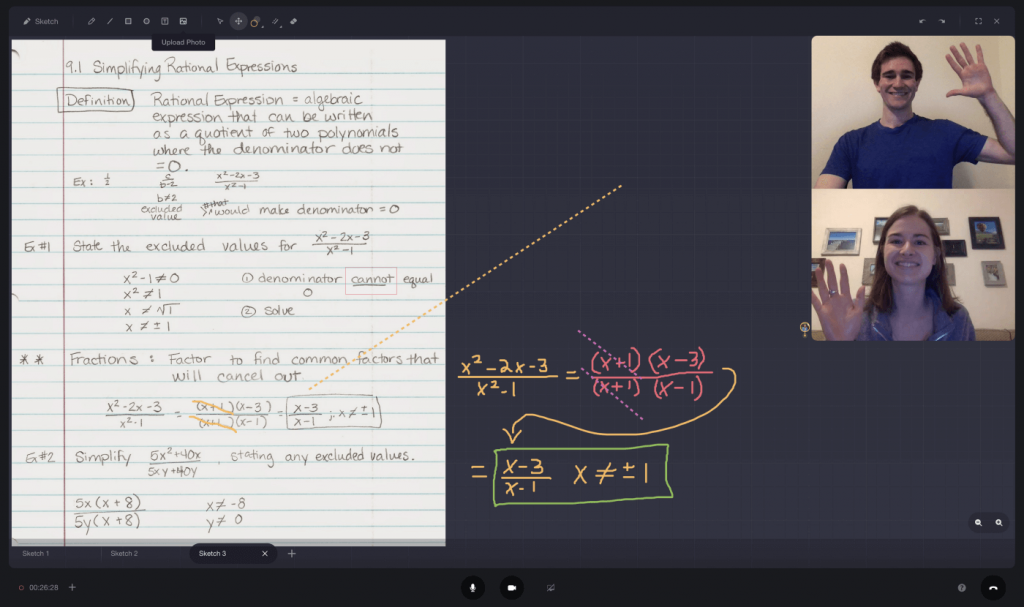 Sketch
Upload Photo
9.1 Simplifying Rational Expressions
Definition Rational Expression = algebraic
expression that can be written
as a quotient of two polynomials
where the denominator does not
= 0.
Ex: 1/2 c/(b-2) (x²-2x-3)/(x²-1)
b≠2
excluded value that would make denominator = 0
Ex #1 State the excluded values for (x²-2x-3)/(x²-1)
x²-1≠0 ① denominator cannot equal
x² ≠ 1 0
x ≠ √1 ② Solve
x ≠ ±1
** Fractions: Factor to find common factors that
will cancel out.
(x²-2x-3)/(x²-1) = (x+1)(x-3)/(x+1)(x-1) = (x-3)/(x-1) ; x≠±1
Ex #2 Simplify (5x²+40x)/(5xy+40y), stating any excluded values.
5x(x+8)/5y(x+8) x≠-8
y≠0
(x²-2x-3)/(x²-1) = (x+1)(x-3)/(x+1)(x-1)
= (x-3)/(x-1) x≠±1
Sketch 1 Sketch 2 Sketch 3
00:26:28